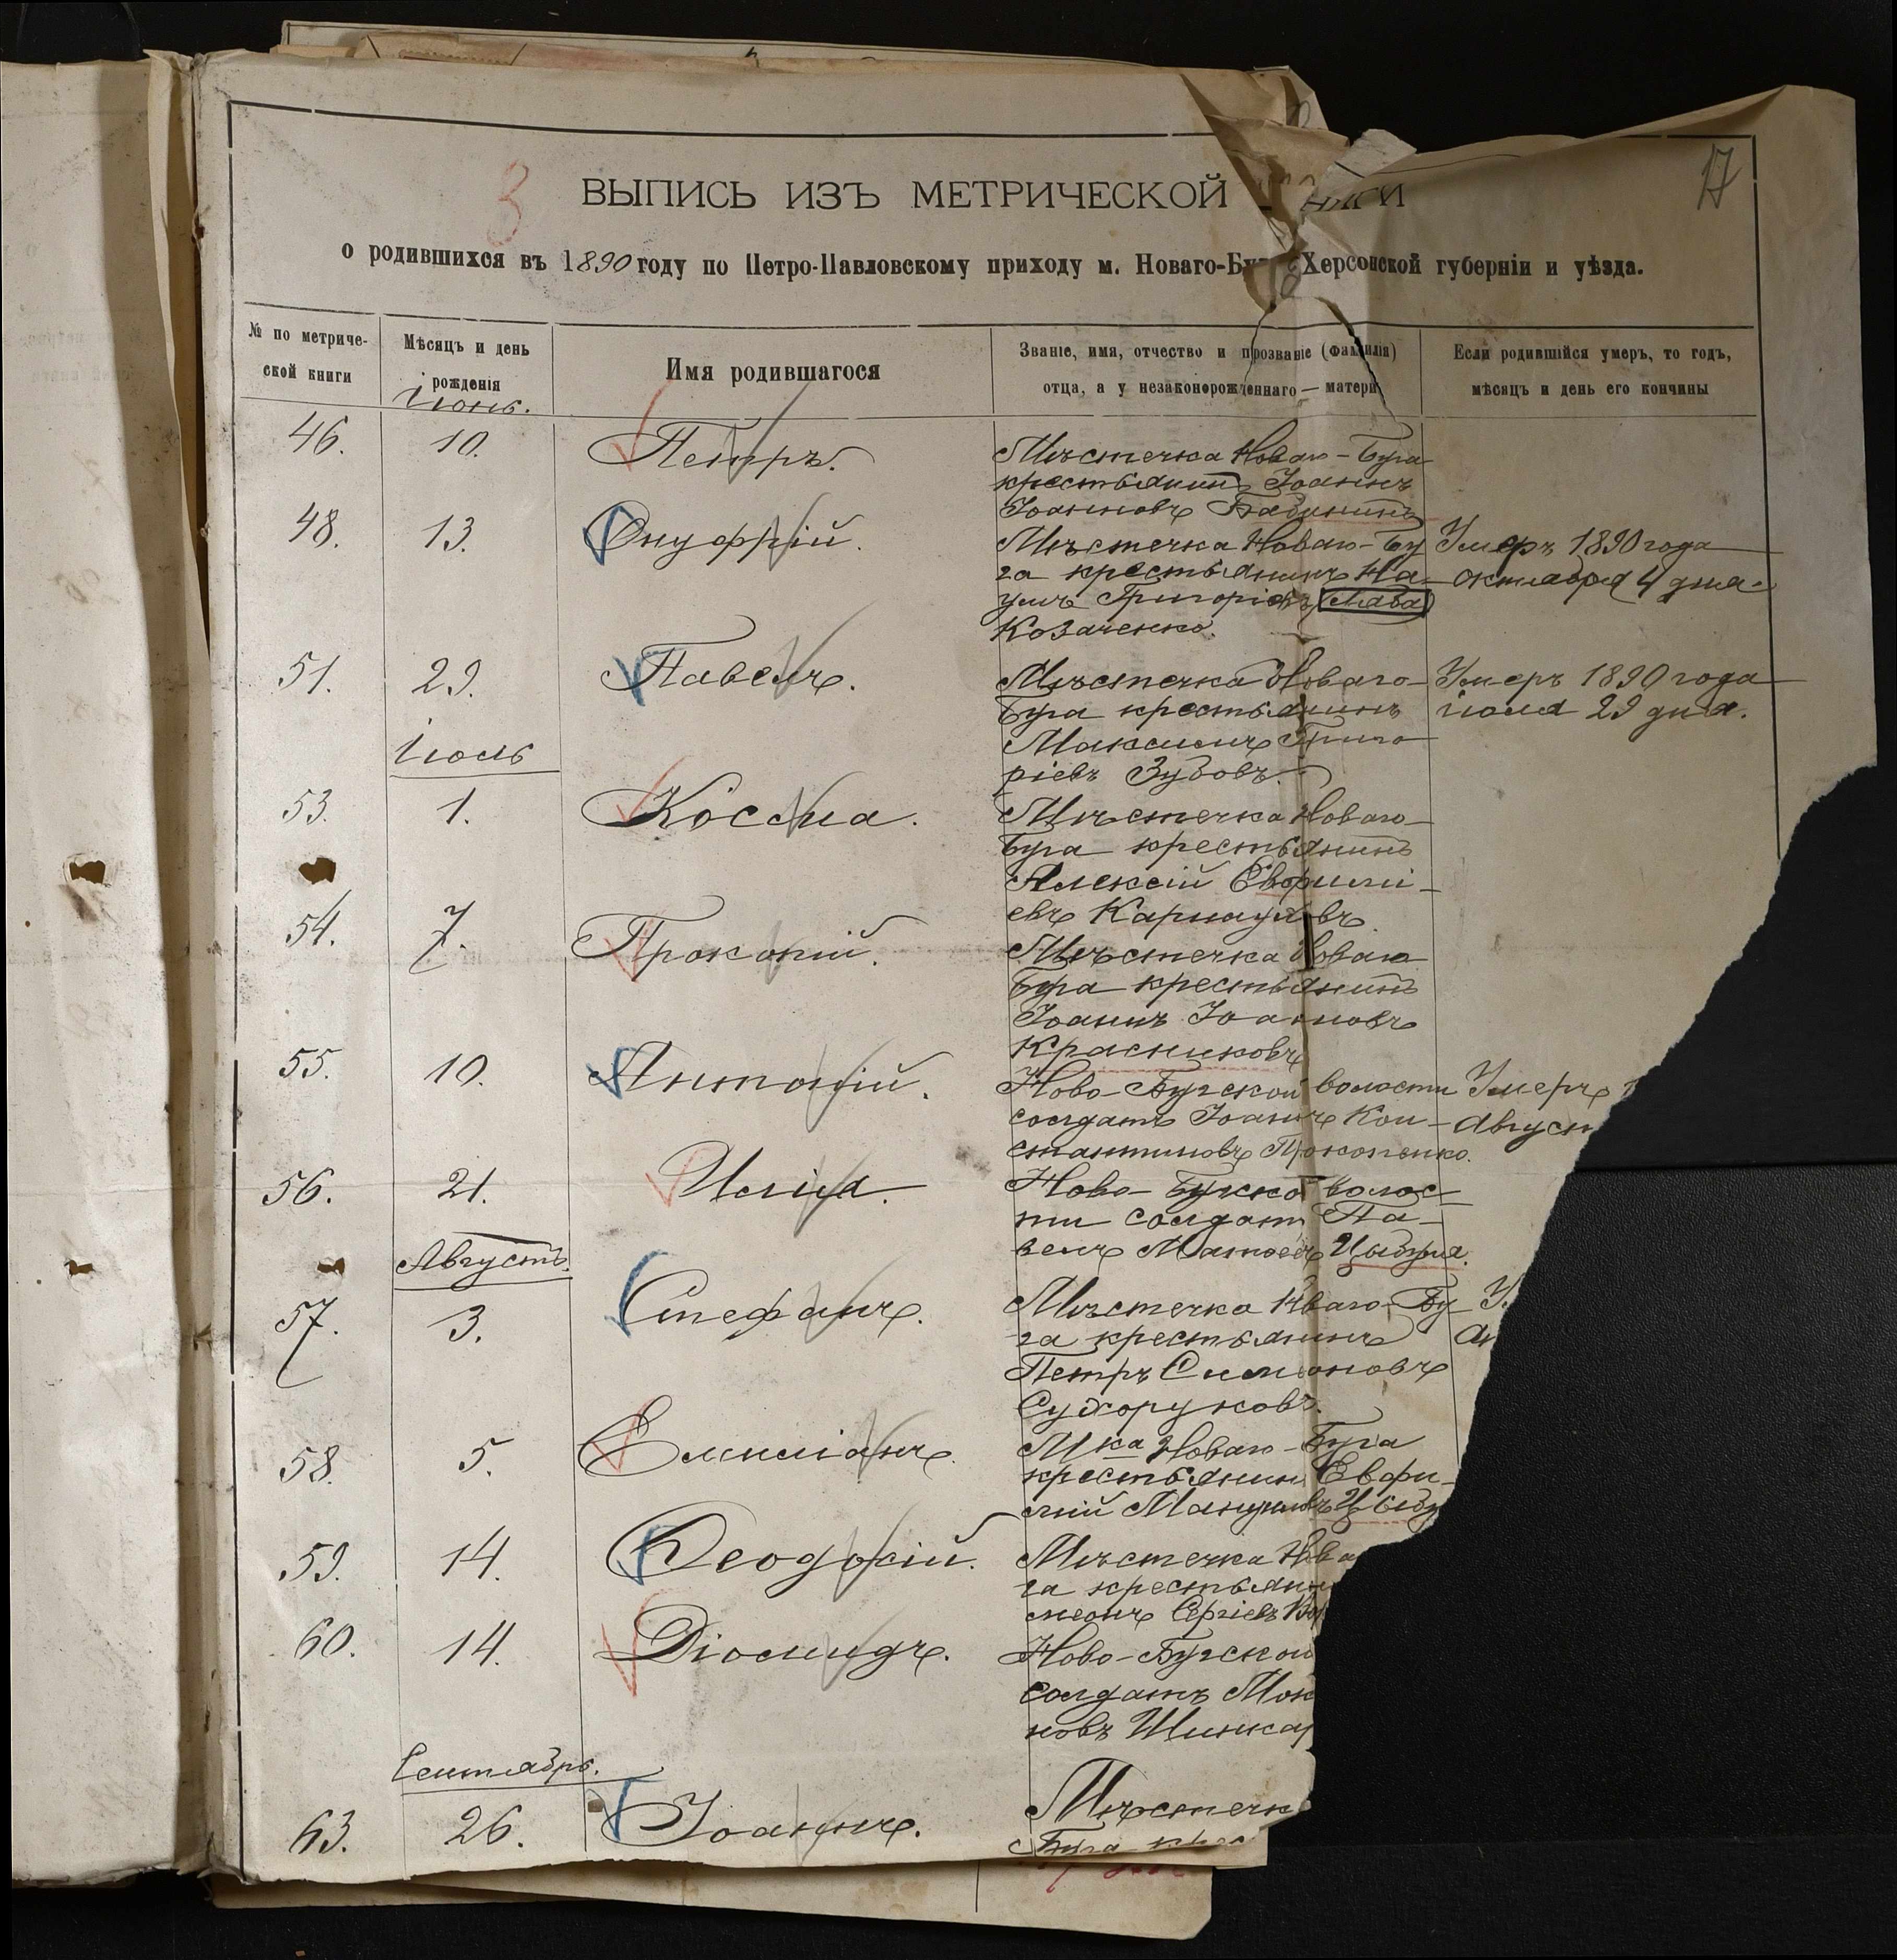 17
3
ВЫПИСЬ ИЗЪ МЕТРИЧЕСКОЙ
о родившихся въ 1890 году по Петро-Павловскому приходу м. Новаго-Буга Херсонской губерніи и уѣзда.
№ по метриче-
ской книги
Мѣсяцъ и день
рожденія
Имя родившагося
Званіе, имя, отчество и прозваніе (фамилія)
отца, а у незаконорожденнаго — матери
Если родившійся умеръ, то годъ,
мѣсяцъ и день его кончины
Іюнь.
46. 10. Петръ. Мѣстечка Новаго-Буга
крестьянинъ Іоаннъ
Іоанновъ
48. 13. Онуфрій. Мѣстечка Новаго-Бу Умеръ 1890 года
га крестьянинъ На- октября 4 дня.
умъ Григоріевъ
Козаченко.
51. 29. Павелъ. Мѣстечка Новаго- Умеръ 1890 года
Буга крестьянинъ іюля 29 дня.
Максимъ Григо
ріевъ Зубовъ.
Іюль
53. 1. Косма. Мѣстечка Новаго-
Буга крестьянинъ
Алексій Евфимі-
евъ Карнауховъ
54. 7. Прокопій. Мѣстечка Новаго
Буга крестьянинъ
Іоаннъ Іоанновъ
Красниковъ
55. 10. Антоній. Ново-Бугской волости Умеръ
солдатъ Іоаннъ Кон- Август
стантиновъ Прокопенко.
56. 21. Илія. Ново-Бугской волос-
ти солдатъ Па-
велъ Матѳеевъ Цыбуля.
Августъ.
57. 3. Стефанъ. Мѣстечка Новаго-Бу У
га крестьянинъ
Петръ Симоновъ
Сухоруковъ.
58. 5. Емиліанъ. М ка Новаго-Буга
крестьянин Евфи-
мій Мануиловъ Цыбу
59. 14. Ѳеодосій. Мѣстечка Нова
га крестьяни
меонъ Сергіевъ
60. 14. Діомидъ. Ново-Бугской
солдатъ
новъ Шинка
Сентябрь.
63. 26. Іоаннъ. Мѣстечк
Буга